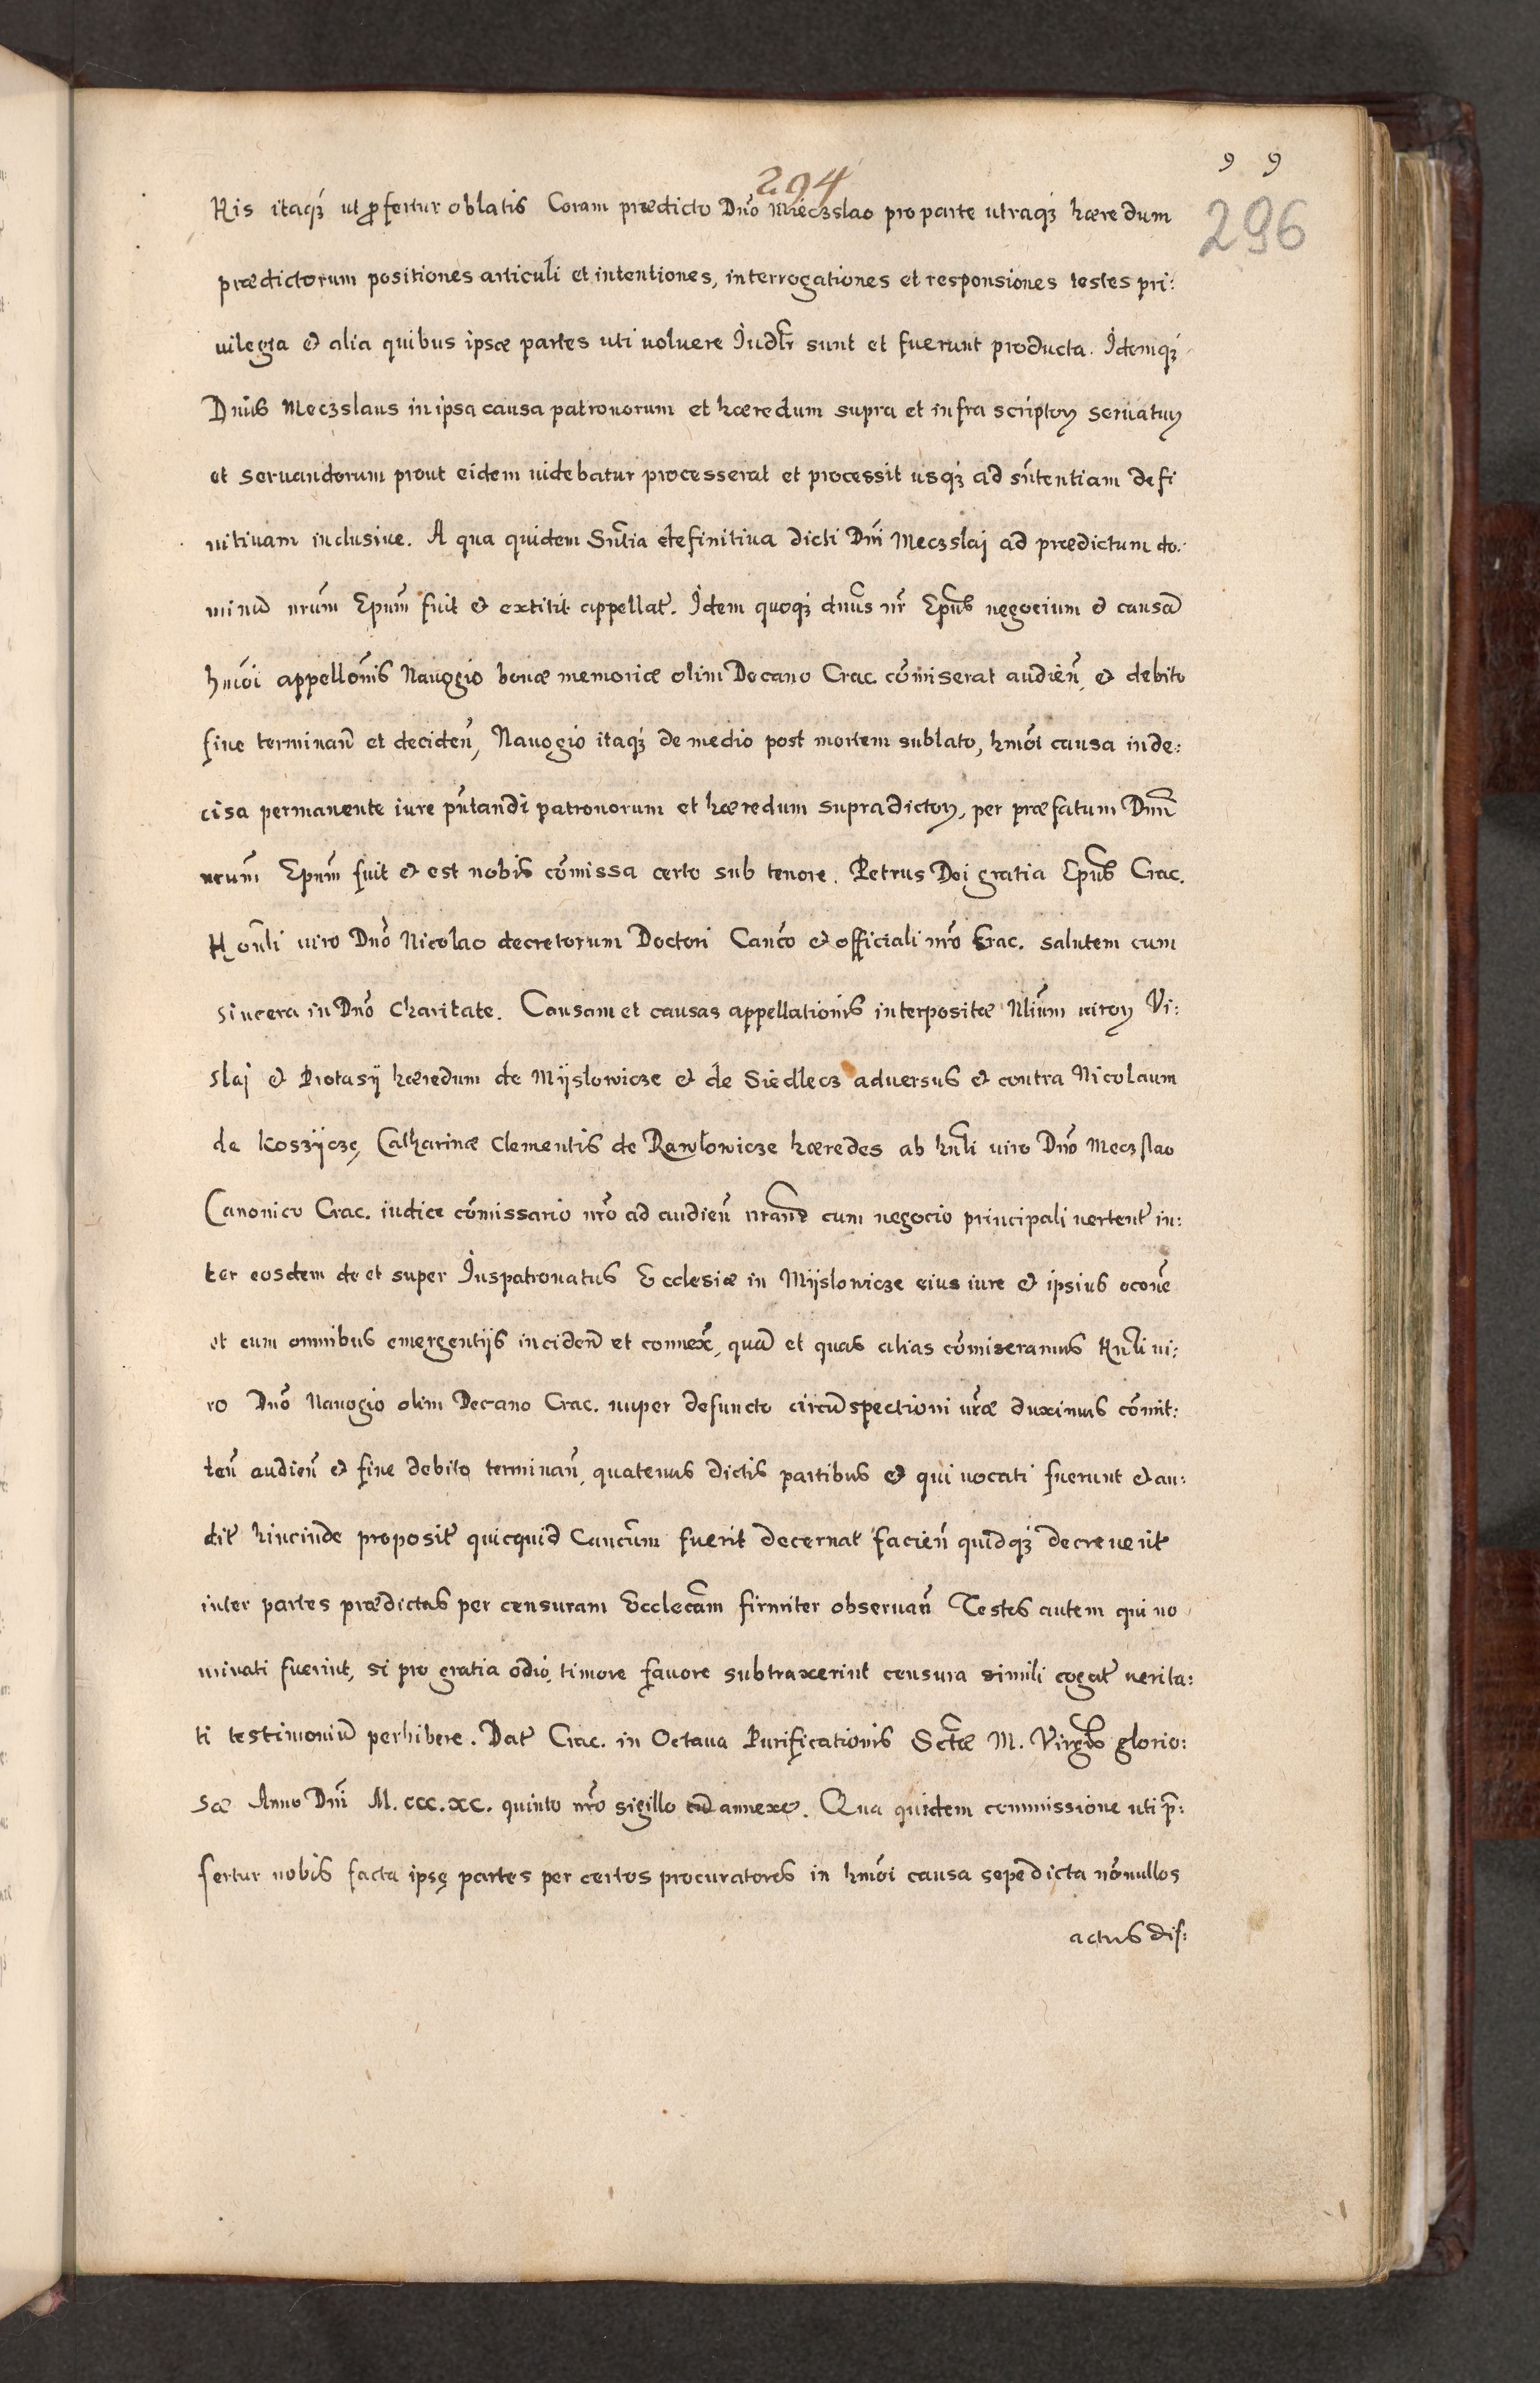 9 9
294
296
His itaqȝ ut ꝓfertur oblatis Coram prædicto Dño Mieczslao pro parte utraqȝ hæredum
prædictorum positiones articuli et intentiones, interrogationes et responsiones testes pri:
uilegia & alia quibus ipsæ partes uti uoluere Iudl̃r sunt et fuerunt producta. Idemqȝ
Dñus Meczslaus in ipsa causa patronorum et hæredum supra et infra scriptoꝝ seruatuꝝ
et seruandorum prout eidem uidebatur processerat et processit usqȝ ad sñtentiam defi
nitiuam inclusiue. A qua quidem Sñtia definitiua dicti Dñi Meczslaj ad prædictum do:
minū nrũm Epũm fuit & extitit appellat̃. Idem quoqȝ dñus nr̃ Epũs negocium & causā
hmõi appellõnis Nauogio bonæ memoriæ olim Decano Crac. cõmiserat audieñ, & debito
fine terminañ et decideñ, Nauogio itaqȝ de medio post mortem sublato, hmõi causa inde:
cisa permanente iure pñtandi patronorum et hæredum supradictoꝝ, per præfatum Dñm
nrũm Epũm fuit & est nobis cõmissa certo sub tenore. Petrus Dei gratia Epũs Crac.
Honl̃i uiro Dño Nicolao decretorum Doctori Canc̃o & officiali nr̃o Crac. salutem cum
sincera in Dño Charitate. Causam et causas appellationis interpositæ Nlĩum uiroꝝ Vi:
slaj & Protasij hæredum de Mijslowicze & de Siedlecz aduersus & contra Nicolaum
de Koszijcze, Catharinæ Clementis de Rawlowicze hæredes ab hñli uiro Dño Meczslao
Canonico Crac. iudice cõmissario nr̃o ad audieñ cum negocio principali uertent̃ in:
ter eosdem de et super Iuspatronatus Ecclesiæ in Mijslowicze eius iure & ipsius ocoñe
et cum omnibus emergentijs incideñ et connex̃, quā et quas alias cõmiseramus Hñli ui:
ro Dño Nauogio olim Decano Crac. nuper defuncto circũspectioni ur̃æ duximus cõmit:
teñ audieñ & fine debito terminañ, quatenus dictis partibus & qui uocati fuerunt & au:
dit̃ hincinde proposit̃ quicquid Canc̃um fuerit decernat facieñ quidqȝ decreuerit
inter partes prædictas per censuram Ecclec̃am firmiter obseruañ Testes autem qui no
minati fuerint, si pro gratia odio, timore fauore subtraxerint censura simili cogat̃ uerita:
ti testimoniũ perhibere. Dat̃ Crac. in Octaua Purificationis Sct̃æ M. Virgĩs glorio:
sæ Anno Dñi M.CCC.XC. quinto nr̃o sigillo annexo. Qua quidem commissione uti p̃:
fertur nobis facta ipsę partes per certos procuratores in hmõi causa sepedicta nõnullos
actus dis: